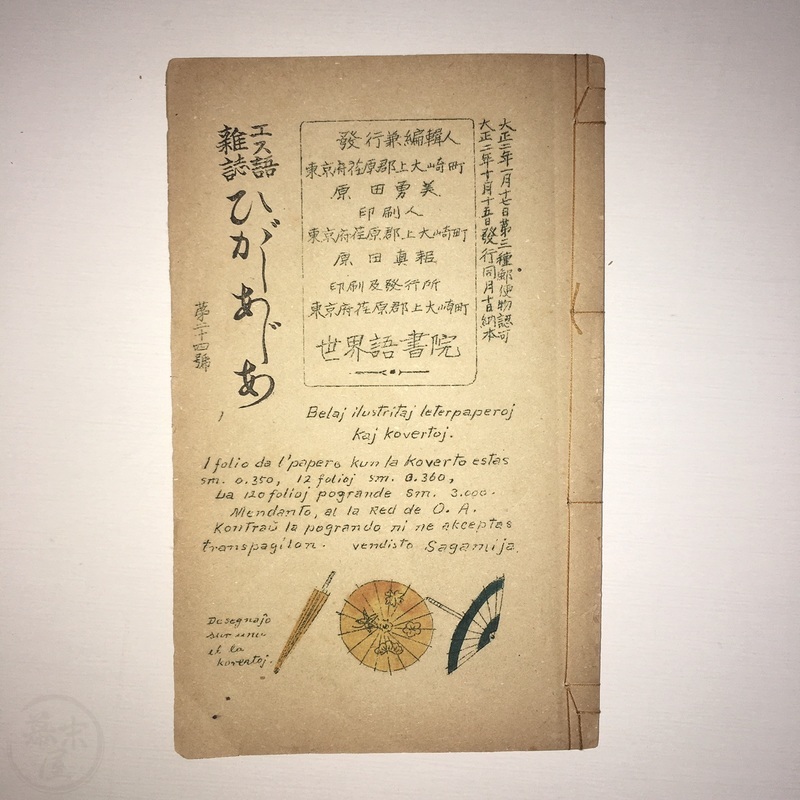 大正二年一月十七日第三種郵便物認可
大正二年十一月十五日發行同月十日納本
發行兼編輯人
東京府荏原郡上大崎町
原田勇美
印刷人
東京府荏原郡上大崎町
原田真
印刷及發行所
東京府荏原郡上大崎町
世界語書院
エス語
雜誌
ひがしあじあ
第二十四號
Belaj ilustritaj leterpaperoj
kaj kovertoj.
1 folio da l'papero kun la koverto estas
sm. 0.350, 12 folioj sm. 0.360,
La 120 folioj pogrande Sm. 3.000.
Mendanto, al la Red de O. A.
Kontraŭ la pogrando ni ne akceptas
transpagilon. vendisto Sagamija.
Desegnaĵo
sur unu
el la
kovertoj.